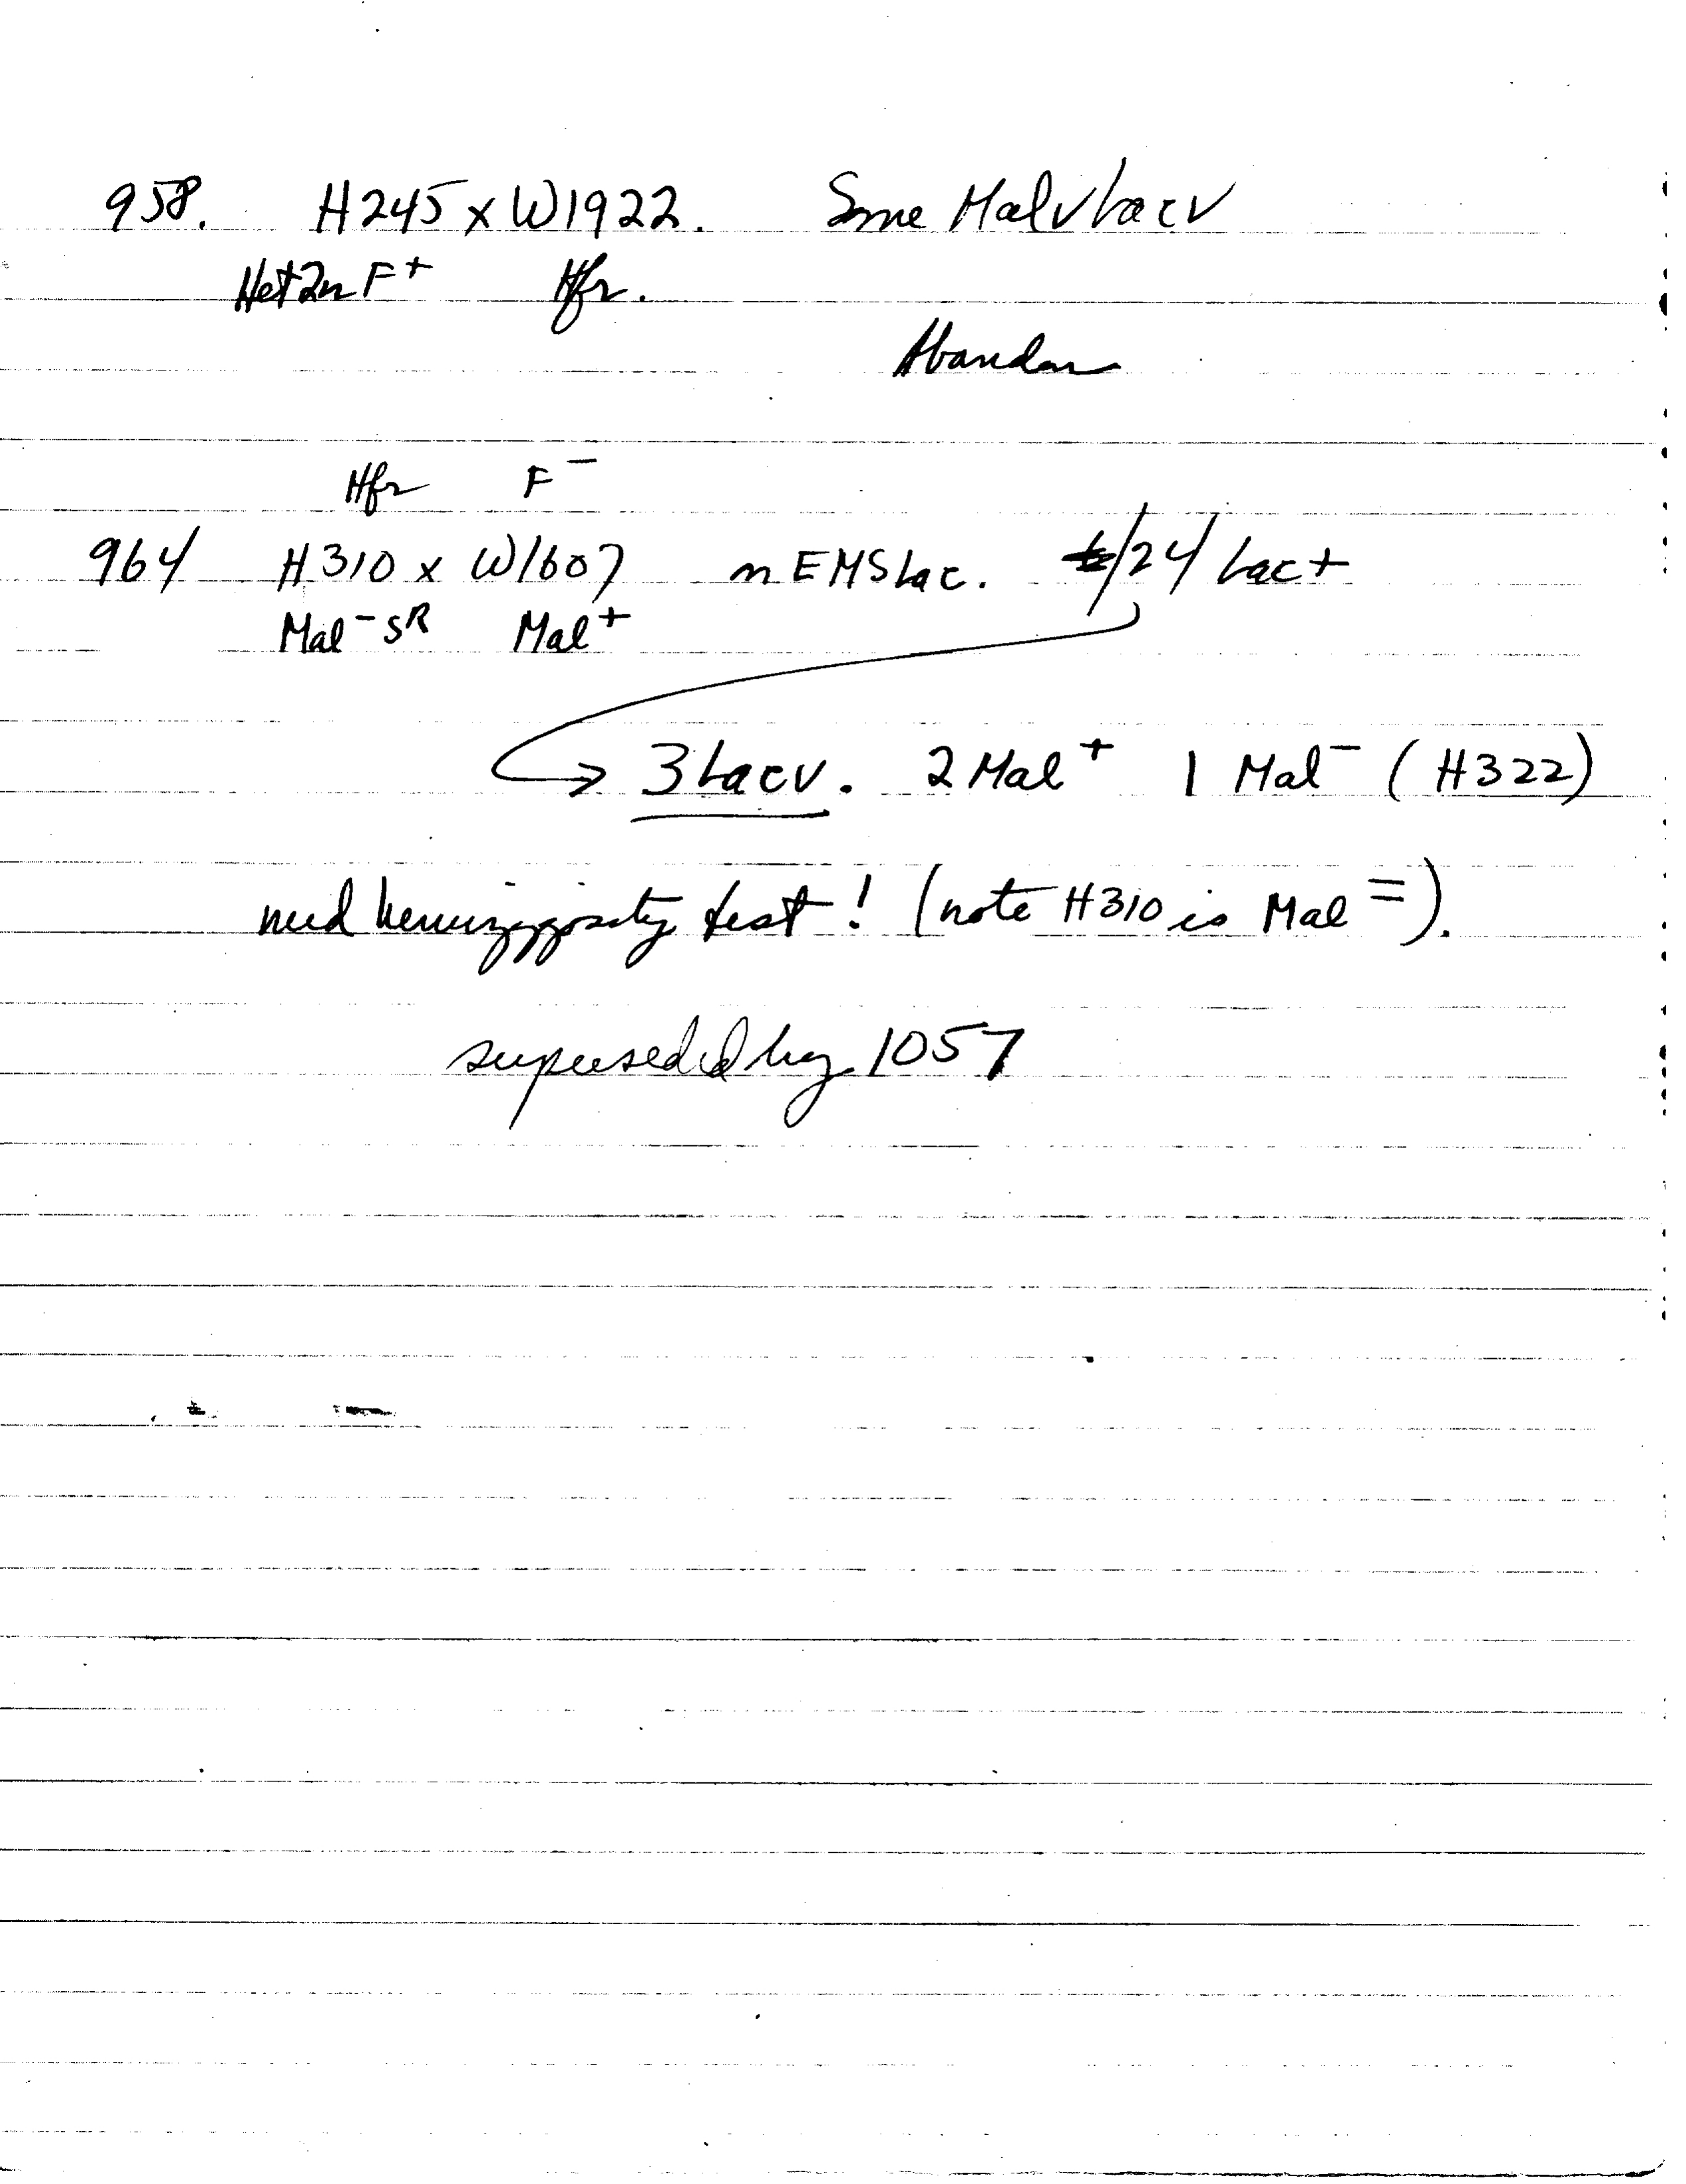 958. H245 x W1922. Some Malv Lacv
Het 2n F+ Hfr.
Abandon
Hfr F-
964 H310 x W1607 n EMS Lac. /24/ Lac+
Mal- SR Mal+
3 Lacv. 2 Mal+ 1 Mal- (H322)
need hemizygosity test! (note H310 is Mal=).
superseded by 1057